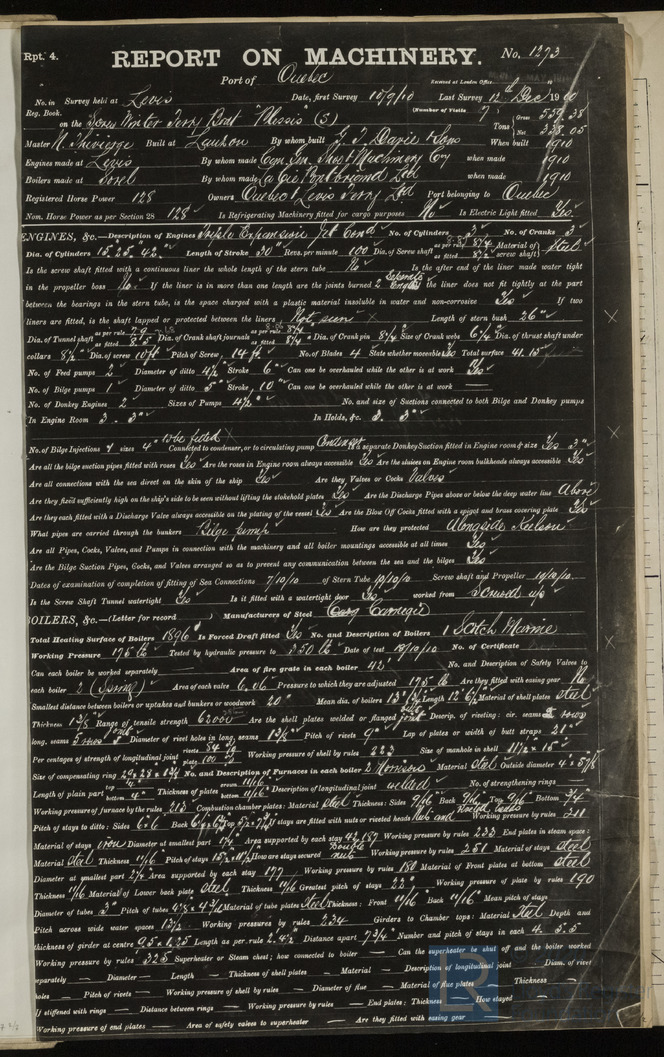 Rpt. 4.
REPORT ON MACHINERY.
No. 1273
Port of Quebec
Received at London Office
No. in Survey held at Levis Date, first Survey 10/9/10 Last Survey 12th Dec 1910
Reg. Book. (Number of Visits 7)
on the Screw Winter Ferry Boat Plessis (S) Tons Gross 559.38 Net 238.05
Master Built at Lauzon By whom built G. T. Davie & Sons When built 1910
Engines made at Levis By whom made when made 1910
Boilers made at Sorel By whom made La Cie Pontbriand Ltd when made 1910
Registered Horse Power 128 Owners Quebec & Levis Ferry Ltd Port belonging to Quebec
Nom. Horse Power as per Section 28 128 Is Refrigerating Machinery fitted for cargo purposes No Is Electric Light fitted Yes
ENGINES, &c.—Description of Engines Triple Expansion Jet Cond No. of Cylinders 3 No. of Cranks 3
Dia. of Cylinders 15" 25" 42" Length of Stroke 30" Revs. per minute 100 Dia. of Screw shaft as per rule as fitted 8½" Material of screw shaft Steel
Is the screw shaft fitted with a continuous liner the whole length of the stern tube No Is the after end of the liner made water tight
in the propeller boss No If the liner is in more than one length are the joints burned Separate 2 Lengths If the liner does not fit tightly at the part
between the bearings in the stern tube, is the space charged with a plastic material insoluble in water and non-corrosive Yes If two
liners are fitted, is the shaft lapped or protected between the liners Length of stern bush 26"
Dia. of Tunnel shaft as per rule 7.9 as fitted 8.5 Dia. of Crank shaft journals as per rule as fitted 8¾ Dia. of Crank pin 8¾ Size of Crank webs 6¼ Dia. of thrust shaft under
collars 8½" Dia. of screw 10ft Pitch of Screw 14 ft No. of Blades 4 State whether moveable Yes Total surface 41.15
No. of Feed pumps 2 Diameter of ditto 4½ Stroke 6" Can one be overhauled while the other is at work Yes
No. of Bilge pumps 1 Diameter of ditto 5" Stroke 10" Can one be overhauled while the other is at work —
No. of Donkey Engines 2 Sizes of Pumps 4½" No. and size of Suctions connected to both Bilge and Donkey pumps
In Engine Room 3. 3" In Holds, &c. 3. 3"
No. of Bilge Injections 1 sizes 4" to be fitted Connected to condenser, or to circulating pump Condenser Is a separate Donkey Suction fitted in Engine room & size Yes 3"
Are all the bilge suction pipes fitted with roses Yes Are the roses in Engine room always accessible Yes Are the sluices on Engine room bulkheads always accessible Yes
Are all connections with the sea direct on the skin of the ship Yes Are they Valves or Cocks Valves
Are they fixed sufficiently high on the ship's side to be seen without lifting the stokehold plates Yes Are the Discharge Pipes above or below the deep water line Above
Are they each fitted with a Discharge Valve always accessible on the plating of the vessel Yes Are the Blow Off Cocks fitted with a spigot and brass covering plate Yes
What pipes are carried through the bunkers Bilge pump How are they protected Alongside Keelson
Are all Pipes, Cocks, Valves, and Pumps in connection with the machinery and all boiler mountings accessible at all times Yes
Are the Bilge Suction Pipes, Cocks, and Valves arranged so as to prevent any communication between the sea and the bilges Yes
Dates of examination of completion of fitting of Sea Connections 7/10/10 of Stern Tube 10/10/10 Screw shaft and Propeller 10/10/10
Is the Screw Shaft Tunnel watertight Yes Is it fitted with a watertight door Yes worked from Screwed up
BOILERS, &c.—(Letter for record ) Manufacturers of Steel Carnegie
Total Heating Surface of Boilers 1896 Is Forced Draft fitted Yes No. and Description of Boilers 1 Scotch Marine
Working Pressure 175 lb Tested by hydraulic pressure to 350 lb Date of test 18/10/10 No. of Certificate
Can each boiler be worked separately Area of fire grate in each boiler 42 No. and Description of Safety Valves to
each boiler 2 (Spring) Area of each valve 6.06 Pressure to which they are adjusted 175 lb Are they fitted with easing gear No
Smallest distance between boilers or uptakes and bunkers or woodwork 20" Mean dia. of boilers Length 12' 6½ Material of shell plates Steel
Thickness 1 3/8 Range of tensile strength 62000 Are the shell plates welded or flanged Descrip. of riveting: cir. seams 2 rows
long. seams 3 rows Diameter of rivet holes in long. seams 1 3/8 Pitch of rivets 9" Lap of plates or width of butt straps 21"
Per centages of strength of longitudinal joint rivets plate Working pressure of shell by rules 223 Size of manhole in shell 11½ x 15"
Size of compensating ring No. and Description of Furnaces in each boiler 2 Morrison Material Steel Outside diameter
Length of plain part top 4" bottom 4" Thickness of plates crown 11/16 bottom 11/16 Description of longitudinal joint welded No. of strengthening rings
Working pressure of furnace by the rules 213 Combustion chamber plates: Material Steel Thickness: Sides 9/16 Back 9/16 Top 9/16 Bottom ¾"
Pitch of stays to ditto: Sides 6x6 Back Top If stays are fitted with nuts or riveted heads Nuts and Riveted heads Working pressure by rules 211
Material of stays iron Diameter at smallest part 1¼ Area supported by each stay Working pressure by rules 233 End plates in steam space:
Material Steel Thickness 11/16 Pitch of stays How are stays secured Double nuts Working pressure by rules 251 Material of stays Steel
Diameter at smallest part Area supported by each stay 177 Working pressure by rules 180 Material of Front plates at bottom Steel
Thickness 11/16 Material of Lower back plate Steel Thickness 11/16 Greatest pitch of stays 22" Working pressure of plate by rules 190
Diameter of tubes 3" Pitch of tubes Material of tube plates Steel Thickness: Front 11/16 Back 11/16 Mean pitch of stays
Pitch across wide water spaces 13½ Working pressures by rules 234 Girders to Chamber tops: Material Steel Depth and
thickness of girder at centre Length as per rule Distance apart 7¾ Number and pitch of stays in each 4. 5.5
Working pressure by rules 325 Superheater or Steam chest; how connected to boiler — Can the superheater be shut off and the boiler worked
separately — Diameter — Length — Thickness of shell plates — Material — Description of longitudinal joint — Diam. of rivet
holes — Pitch of rivets — Working pressure of shell by rules — Diameter of flue — Material of flue plates Thickness —
If stiffened with rings — Distance between rings — Working pressure by rules — End plates: Thickness How stayed —
Working pressure of end plates — Area of safety valves to superheater — Are they fitted with easing gear